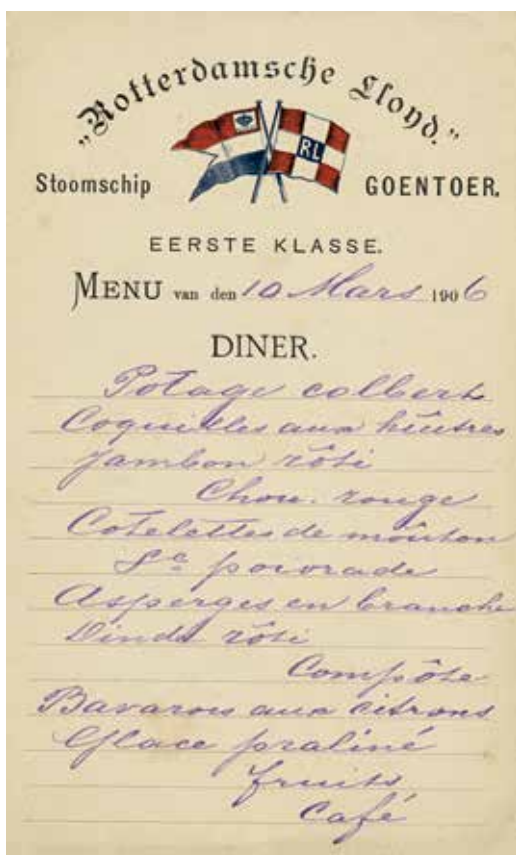 „Rotterdamsche Lloyd.”
RL
Stoomschip GOENTOER.
EERSTE KLASSE.
MENU van den 10 Mars 1906
DINER.
Potage colbert
Coquilles aux huîtres
Jambon rôti
Chou. rouge
Cotelettes de moûton
Sce poivrade
Asperges en branche
Dinde rôti
Compôte
Bavarois aux citrons
Glace praliné
fruits
Café